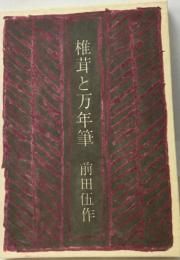 椎茸と万年筆
前田伍作